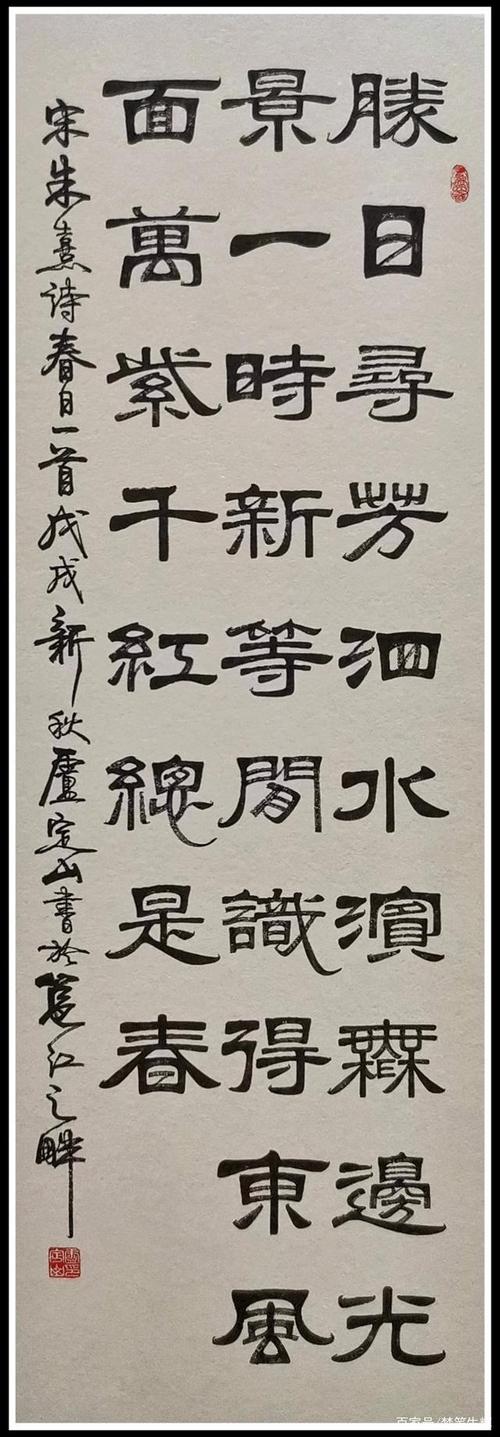 勝日尋芳泗水濱無邊光
景一時新等閒識得東風
面萬紫千紅總是春
宋朱熹诗春日一首戊戌新秋盧定山書於邕江之畔